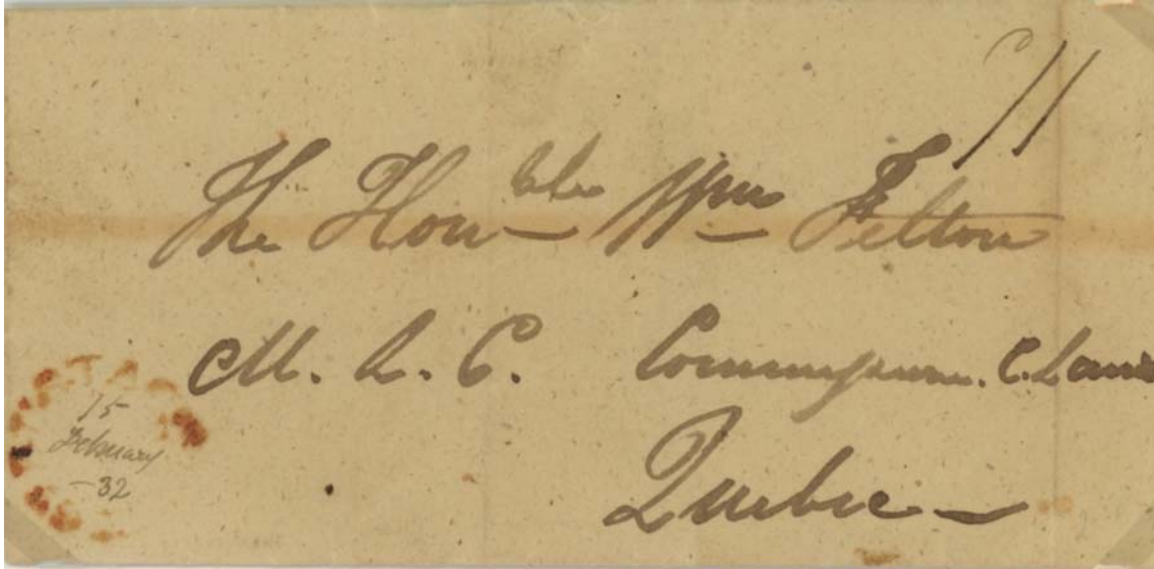 11
The Honble Wm Felton
M. L. C. Commissioner. C. Land
Quebec
15
February
-32